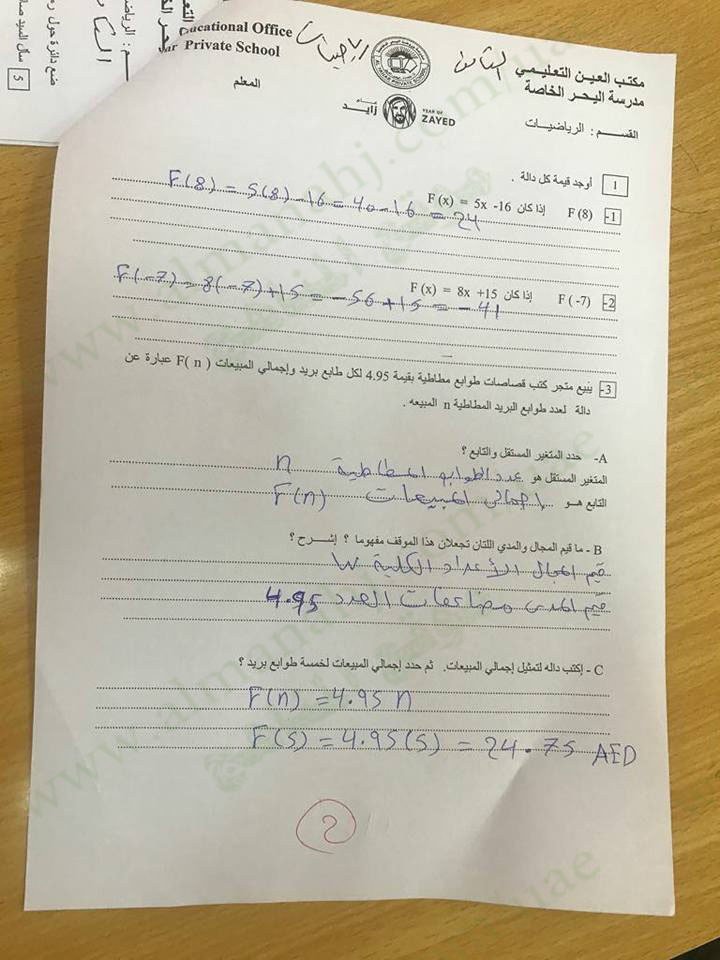 Educational Office
Private School
الرياضيات
الثامن
مكتب العين التعليمي
مدرسة البحر الخاصة
المعلم
عــام
زايد
YEAR OF
ZAYED
القســم : الرياضيـات
1 أوجد قيمة كل دالة .
-1 F (8) إذا كان F (x) = 5x -16
F(8) = 5(8) -16 = 40 -16 = 24
-2 F ( -7) إذا كان F (x) = 8x +15
F(-7) = 8(-7)+15 = -56 +15 = -41
-3 يبيع متجر كتب قصاصات طوابع مطاطية بقيمة 4.95 لكل طابع بريد وإجمالي المبيعات F( n ) عبارة عن
دالة لعدد طوابع البريد المطاطية n المبيعه .
A- حدد المتغير المستقل والتابع ؟
المتغير المستقل هو عدد الطوابع المطاطية n
التابع هــو اجمالي المبيعات F(n)
B - ما قيم المجال والمدي اللتان تجعلان هذا الموقف مفهوما ؟ إشــرح ؟
قيم المجال الأعداد الكلية W
قيم المدى مضاعفات العدد 4.95
C - إكتب داله لتمثيل إجمالي المبيعات. ثم حدد إجمالي المبيعات لخمسة طوابع بريد ؟
F(n) = 4.95 n
F(5) = 4.95(5) = 24.75 AED
2
ضع دائرة حول
5
www.almanahj.com/uae
موقع المناهج